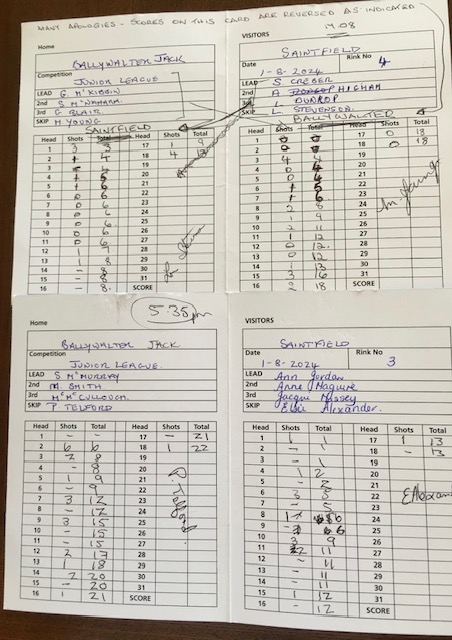 MANY APOLOGIES - SCORES ON THIS CARD ARE REVERSED AS INDICATED
Home
BALLYWALTER JACK
Competition
JUNIOR LEAGUE
LEAD G McKIBBIN
2nd S McNAMARA
3rd G BLAIR
SKIP M YOUNG
SAINTFIELD
Head Shots Total Head Shots Total
1 3 3 17 1 9
2 18 4 13
3 19
4 20
5 21
6 22
7 0 6 23
8 0 6 24
9 0 6 25
10 0 6 26
11 0 6 27
12 1 7 28
13 1 8 29
14 - 8 30
15 - 8 31
16 - 8 SCORE
VISITORS
17.08
SAINTFIELD
Date 1-8-2024 Rink No 4
LEAD S
2nd A HIGHAM
3rd L DUNLOP
SKIP L STEVENSON
BALLYWALTER
Head Shots Total Head Shots Total
1 17 0 18
2 18 0 18
3 4 4 19
4 20
5 21
6 22
7 23
8 2 8 24
9 1 9 25
10 2 11 26
11 1 12 27
12 0 12 28
13 0 12 29
14 1 13 30
15 3 16 31
16 2 18 SCORE
M. Young
5:35pm
Home
BALLYWALTER JACK
Competition
JUNIOR LEAGUE
LEAD S McMURRAY
2nd M. SMITH
3rd M McCULLOUGH
SKIP P TELFORD
Head Shots Total Head Shots Total
1 - - 17 - 21
2 6 6 18 1 22
3 2 8 19
4 - 8 20
5 1 9 21
6 - 9 22
7 3 12 23
8 - 12 24
9 3 15 25
10 - 15 26
11 - 15 27
12 2 17 28
13 1 18 29
14 2 20 30
15 - 20 31
16 1 21 SCORE
P. Telford
VISITORS
SAINTFIELD
Date 1-8-2024 Rink No 3
LEAD Ann Jordan
2nd Anne Maguire
3rd Jacqui Massey
SKIP Elsie Alexander.
Head Shots Total Head Shots Total
1 1 1 17 1 13
2 - 1 18 - 13
3 - 1 19
4 1 2 20
5 - 2 21
6 3 5 22
7 - 5 23
8 1 6 24
9 - 6 25
10 3 9 26
11 2 11 27
12 - 11 28
13 - 11 29
14 - 11 30
15 1 12 31
16 - 12 SCORE
E Alexan